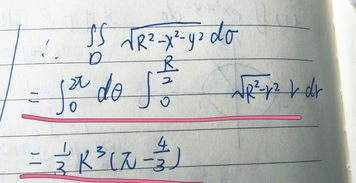 ∴ ∬_D √(R²-x²-y²) dσ
= ∫₀^{2π} dθ ∫₀^{R/2} √(R²-r²) r dr
= 1/3 R³ (π - 4/3)